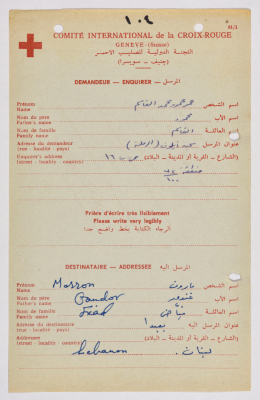 ١٠٤
61/1
COMITÉ INTERNATIONAL de la CROIX-ROUGE
GENÈVE (Suisse)
اللجنة الدولية للصليب الاحمر
(جنيف - سويسرا)
DEMANDEUR - ENQUIRER - المرسل
Prénom
Name
اسم الشخص
Nom du père
Father's name
اسم الأب محمود
Nom de famille
Family name
اسم العائلة القاسم
Adresse du demandeur
(rue - localité - pays)
عنوان المرسل
Enquirer's address
(street - locality - country)
(الشارع - القرية أو المدينة - البلاد)
Prière d'écrire très lisiblement
Please write very legibly
الرجاء الكتابة بخط واضح جدا
DESTINATAIRE - ADDRESSEE - المرسل اليه
Prénom
Name
Marron
اسم الشخص مارون
Nom du père
Father's name
Gandor
اسم الأب غندور
Nom de famille
Family name
اسم العائلة
Adresse du destinataire
(rue - localité - pays)
عنوان المرسل اليه بعبدا
Addressee's address
(street - locality - country)
(الشارع - القرية أو المدينة - البلاد)
Lebanon لبنان.